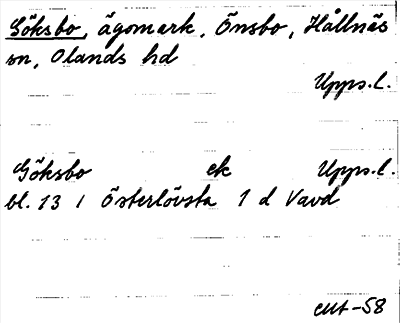 Göksbo, ägomark, Önsbo, Hållnäs
sn, Olands hd
Upps.l.
Göksbo ek Upps.l.
bl. 13 I Österlövsta 1 d Vavd
-58